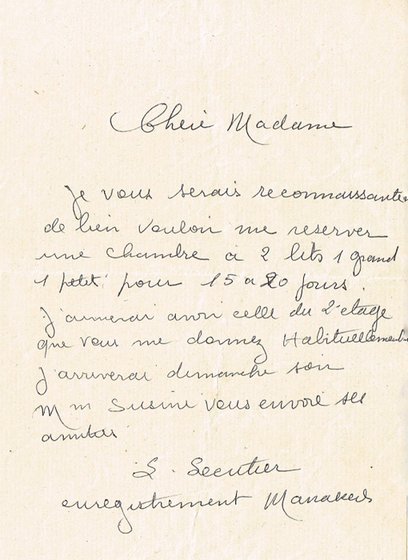 Cherie Madame
Je vous serais reconnaissante
de bien vouloir me reserver
une chambre a 2 lits 1 grand
1 petit pour 15 a 20 jours.
J'aimerai avoir celle du 2e etage
que vous me donnez Habituellement
J'arriverai dimanche soir
Mm Susini vous envoie ses
amities
enregistrement